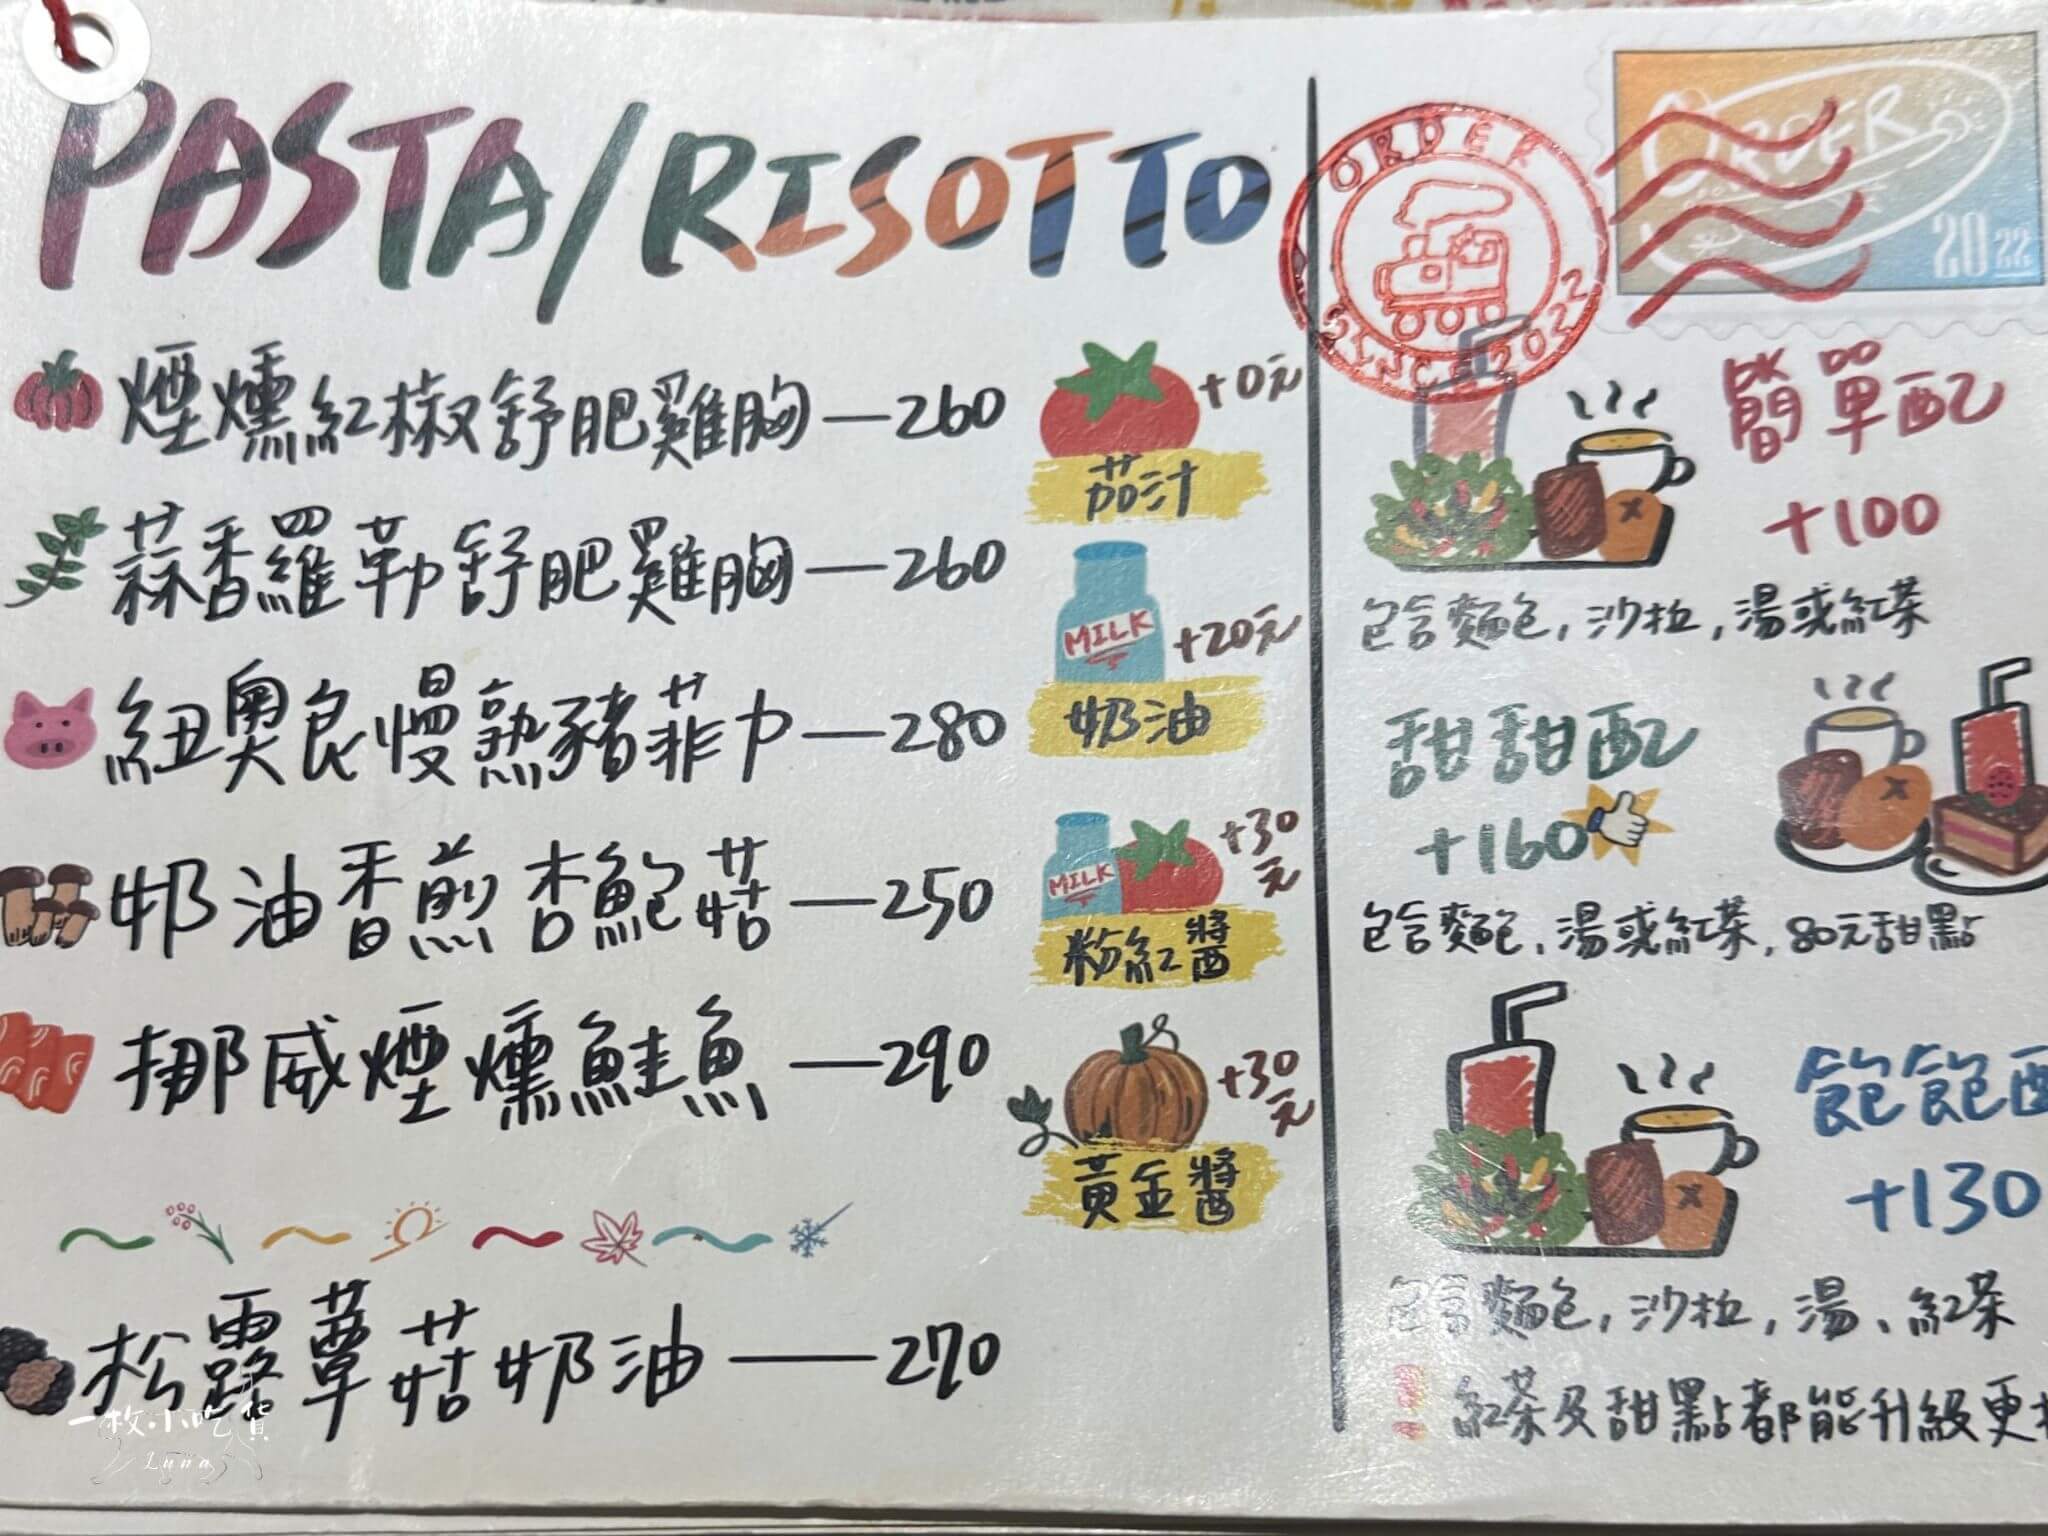 PASTA/RISOTTO
煙燻紅椒舒肥雞胸—260
蒜香羅勒舒肥雞胸—260
紐奧良慢熟豬菲力—280
奶油香煎杏鮑菇—250
挪威煙燻鮭魚—290
松露蕈菇奶油—270
+0元
茄汁
MILK
+20元
奶油
MILK
+30元
粉紅醬
+30元
黃金醬
ORDER
ORDER
2022
簡單配
+100
包含麵包,沙拉,湯或紅茶
甜甜配
+160
包含麵包,湯或紅茶,80元甜點
飽飽配
+130
包含麵包,沙拉,湯、紅茶
紅茶及甜點都能升級更
一枚小吃貨
Luna